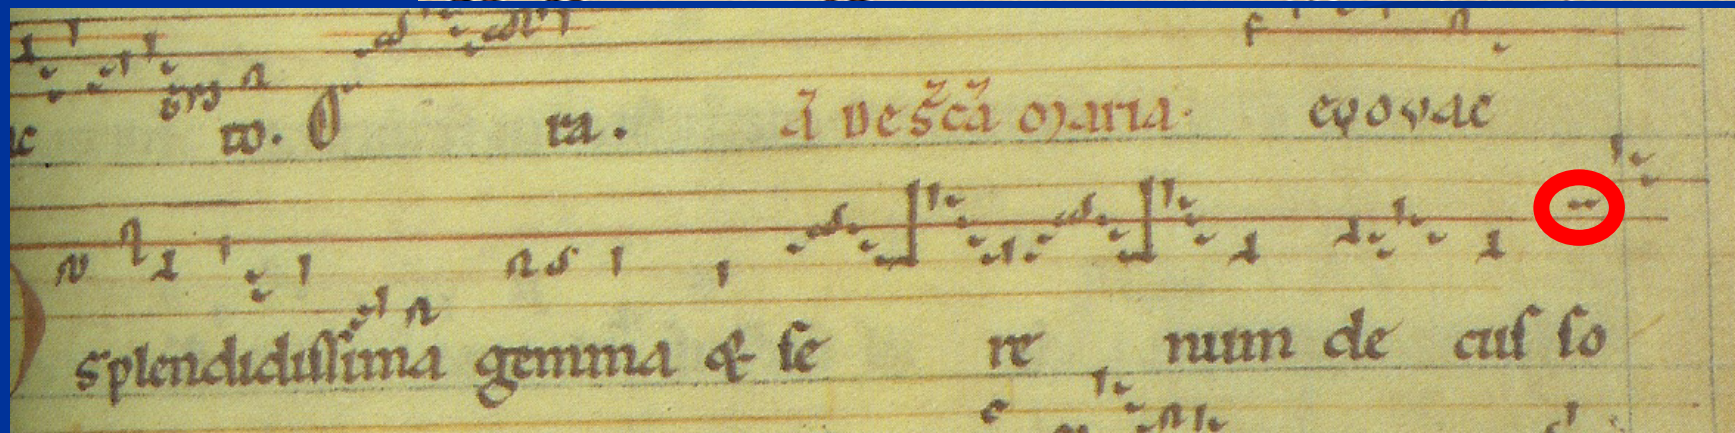 to. ra. A VeSca maria. evovae
splendidissima gemma & se re num de cus so